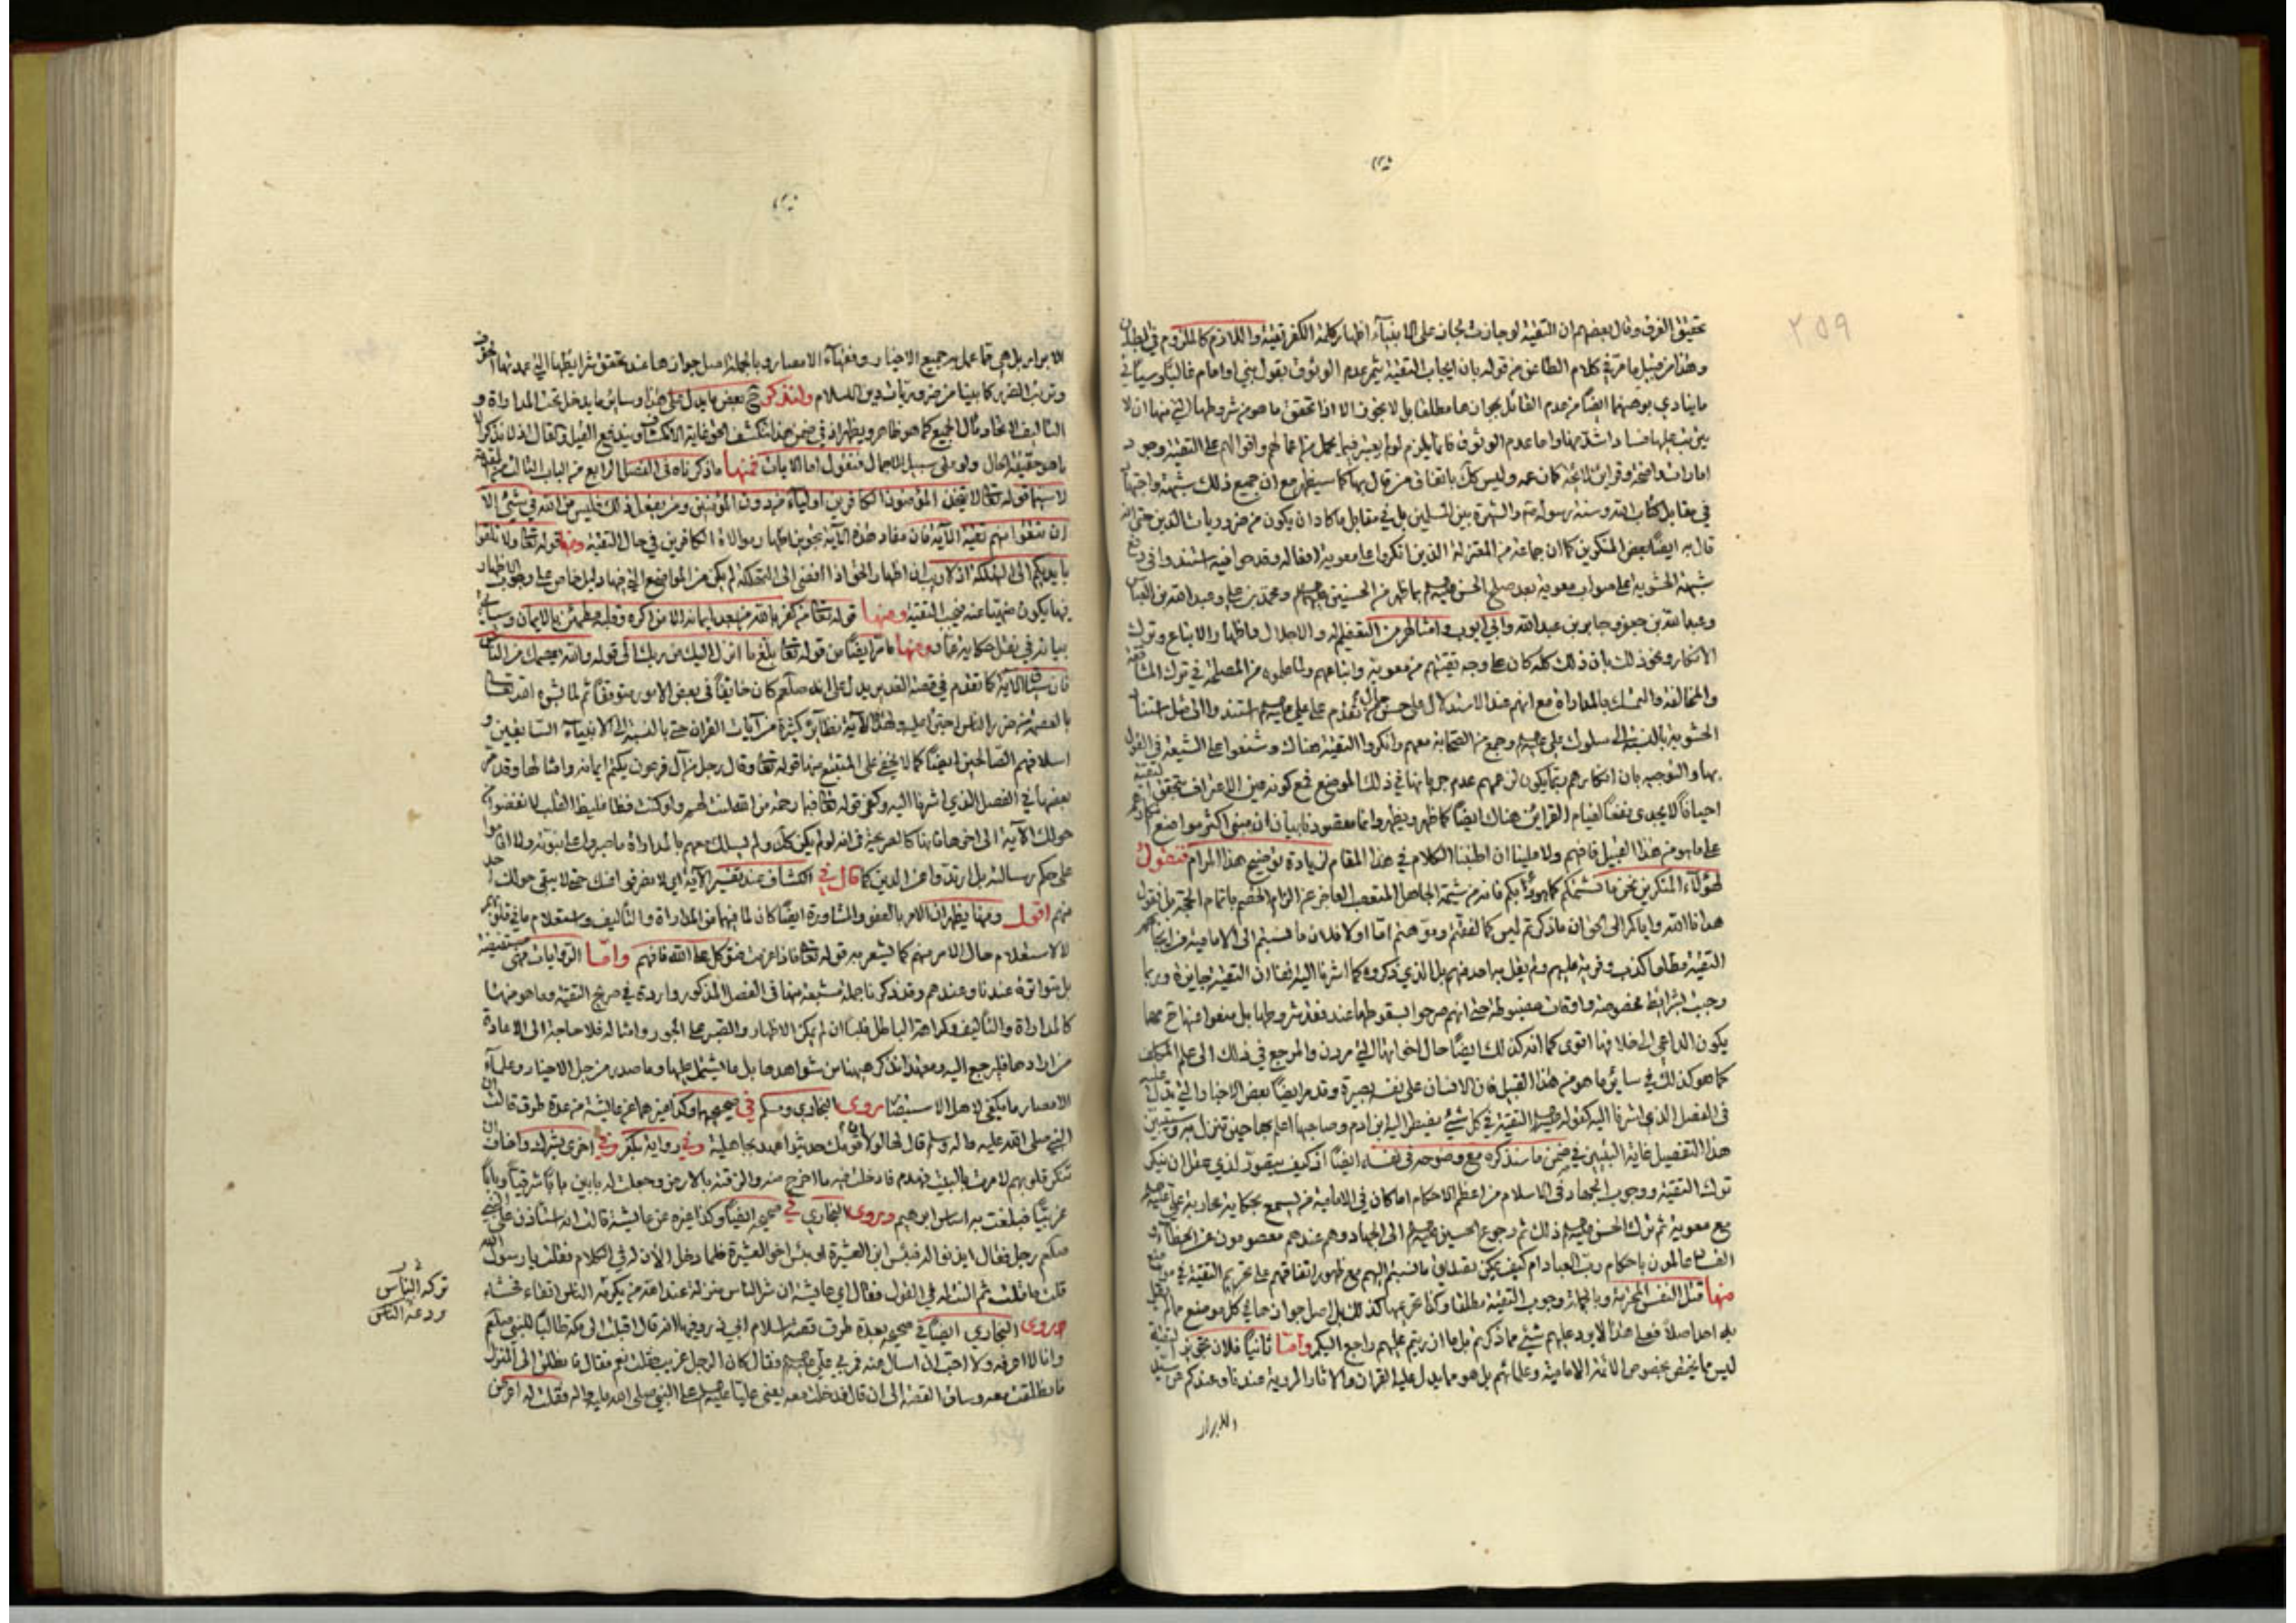 ٢٥٩
تحقيق الفرق وقال بعضهم ان التقية لو جازت لجاز على الانبياء اظهار كلمة الكفر تقية واللازم كالملزوم في البطلان
وهذا من قبيل ما مر في كلام الطاعن من قوله بان ايجاب التقية يثمر عدم الوثوق بقول نبي او امام غالبا وسياتي
ما ينادي بوهنهما ايضا من عدم القائل بجوازها مطلقا بل لا يجوز الا اذا تحقق ما هو من شروطها التي منها ان لا
يترتب عليها فساد اشد منها واما عدم الوثوق فانما يلزم لو لم يعتبر فيما يحمل من اعمالهم واقوالهم على التقية وجود
امارات واضحة وقراين لائحة كان عمه وليس كك باتفاق من قال بها كما سيظهر مع ان جميع ذلك شبهة واجتهاد
في مقابل كتاب الله وسنة رسوله والشهرة بين المسلمين بل في مقابل ما كاد ان يكون من ضروريات الدين حتى انه
قال به ايضا بعض المنكرين كما ان جماعة من المعتزلة الذين انكروا على معوية افعاله وقدحوا فيه استندوا في دفع
شبهة الحشوية على صواب معوية بعد صلح الحسن بما ظهر من الحسنين ومحمد بن علي وعبد الله بن العباس
وعبد الله بن جعفر وجابر بن عبد الله وابي ايوب وامثالهم من التعظيم له والاجلال واظهار الاتباع وترك
الانكار ونحو ذلك بان ذلك كله كان على وجه تقيتهم من معوية واتباعهم ولما علموه من المصلحة في ترك المشاقة
والمخالفة والتمسك بالمداراة مع انهم عند الاستدلال على حسن حال من تقدم على علي استندوا الى مثل استناد
الحشوية بالنسبة الى سلوك علي وجمع من الصحابة معهم وانكروا التقية هناك وشنعوا على الشيعة في القول
بها والتوجيه بان انكارهم ربما يكون لزعمهم عدم جريانها في ذلك الموضع فمع كونه عين الاعتراف بتحقق التقية
احيانا لا يجدي نفعا لقيام القراين هناك ايضا كما ظهر ويظهر وانما مقصودنا بيان ان مبنى اكثر مواضع كلامهم
على ما هو من هذا القبيل فافهم ولا علينا ان اطنبنا الكلام في هذا المقام لزيادة توضيح هذا المرام فنقول
لهؤلاء المنكرين نحن ما نشتمكم كما هو دأبكم فانه من شيمة الجاهل المتعصب العاجز عن الزام الخصم باتمام الحجة بل نقول
هدانا الله واياكم الى الحق ان ما ذكرتم ليس كما لفقتم وتوهمتم اما اولا فلان ما نسبتم الى الامامية من ايجابهم
التقية مطلقا كذب وفرية عليهم ولم يقل به احد منهم بل الذي ذكروه كما اشرنا اليه ايضا ان التقية جايزة وربما
وجبت بشرايط مخصوصة واوقات مضبوطة حتى انهم صرحوا بسقوطها عند فقد شروطها بل منعوا عنها ح مهما
يكون الداعي الى خلافها اقوى كما انه كذلك ايضا حال اخواتها التي مرت والمرجع في ذلك الى علم المكلف
كما هو كذلك في ساير ما هو من هذا القبيل فان الانسان على نفسه بصيرة وقد مر ايضا بعض الاخبار التي تدل عليه
في الفصل الذي اشرنا اليه كقوله التقية في كل شيء يضطر اليه ابن ادم وصاحبها اعلم بها حين تنزل به وسيتبين
هذا التفصيل غاية التبيين في ضمن ما سنذكره مع وضوحه في نفسه ايضا اذ كيف يتصور لذي عقل ان ينكر
ترك التقية ووجوب الجهاد في الاسلام من اعظم الاحكام اما كان في الامامية من يسمع بحكاية محاربة علي
مع معوية ثم ترك الحسن ذلك ثم رجوع الحسين الى الجهاد وهم عندهم معصومون عن الخطأ
عالمون باحكام رب العباد ام كيف يمكن تصديق ما نسبتم اليهم مع ظهور اتفاقهم على تحريم التقية في مواضع
منها قتل النفس المحرمة وبالجملة وجوب التقية مطلقا وكذا تحريمها كذلك بل اصل جوازها في كل موضع مما لم يقل
به احد اصلا فعلى هذا لا يرد عليهم شيء مما ذكرتم بل ما ارتم عليهم راجع اليكم واما ثانيا فلان تجويز التقية
ليس مما يختص بخصوص الائمة الامامية وعلمائهم بل هو مما يدل عليه القران والاثار المروية عندنا وعندكم عن سيد
الابرار
الابرار بل هي مما عمل به جميع الاخيار وفقهاء الامصار وبالجملة اصل جوازها عند تحقق شرايطها التي عمدتها الخوف
وترتب الضرر كما بينا من ضروريات دين الاسلام ولنذكر ح بعض ما يدل على هذا وساير ما يدخل تحت المداراة و
التاليف لاتحاد مآل الجميع كما هو ظاهر ويظهر اذ في ضمن هذا ينكشف الحق غاية الانكشاف ويندفع القيل والقال اذ لا نذكر الا
ما هو حقيقة الحال ولو على سبيل الاجمال فنقول اما الآيات فمنها ما ذكرناه في الفصل الرابع من الباب الثالث
لا سيما قوله تعالى لا يتخذ المؤمنون الكافرين اولياء من دون المؤمنين ومن يفعل ذلك فليس من الله في شيء الا
ان تتقوا منهم تقية الآية فان مفاد هذه الآية تجويز اظهار موالاة الكافرين في حال التقية ومنها قوله تعالى ولا تلقوا
بايديكم الى التهلكة اذ لا ريب ان اظهار الحق اذا افضى الى التهلكة لم يكن من المواضع التي فيها دليل خاص على وجوب الاظهار
فيها يكون منهيا عنه فيجب التقية ومنها قوله تعالى من كفر بالله من بعد ايمانه الا من اكره وقلبه مطمئن بالايمان وسياتي
بيانه في نقل حكاية عمار ومنها ما مر ايضا من قوله تعالى بلغ ما انزل اليك من ربك الى قوله والله يعصمك من الناس
فان هذه الآية كما تقدم في قصة الغدير يدل على انه صلعم كان خايفا في بعض الامور متوقفا ثم لما بشره الله تعالى
بالعصمة من ضرر الناس اجترأ عليه ولهذه الآية نظاير كثيرة من آيات القران حتى بالنسبة الى الانبياء السابقين و
اسلافهم الصالحين ايضا كما لا يخفى على المتتبع منها قوله تعالى وقال رجل من آل فرعون يكتم ايمانه وامثالها وقد مر
بعضها في الفصل الذي اشرنا اليه وكفى قوله تعالى فبما رحمة من الله لنت لهم ولو كنت فظا غليظ القلب لانفضوا من
حولك الآية الى اخرها فانها كالصريحة في انه لو لم يكن كك ولم يسلك معهم بالمداراة ما صبروا على نبوته ولا اقاموا
على حكم رسالته بل ارتدوا عن الدين كما قال في الكشاف عند تفسير الآية اي لا تفرقوا عنك حتى لا يبقى حولك احد
منهم اقول ومنها يظهر ان الامر بالعفو والمشاورة ايضا كان لما فيهما من المداراة والتاليف واستعلام ما في قلوبهم
لا لاستعلام حال الامر منهم كما يشعر به قوله تعالى فاذا عزمت فتوكل على الله فافهم واما الروايات فهي مستفيضة
بل متواترة عندنا وعندهم وقد ذكرنا جملة مشبعة منها في الفصل المذكور واردة في صريح التقية وما هو منها
كالمداراة والتاليف وكراهة الباطل قلبا ان لم يكن الاظهار والصبر على الجور وامثاله فلا حاجة الى الاعادة
من ارادها فليرجع اليه ومعهذا نذكر ههنا من شواهدها بل ما يشتمل عليها وما صدر من جل الاخيار وعلماء
الامصار ما يكفي لاهل الاستبصار روى البخاري ومسلم في صحيحيهما وكذا غيرهما عن عايشة من عدة طرق قالت ان
النبي صلى الله عليه واله وسلم قال لها لولا ان قومك حديثوا عهد بجاهلية وفي رواية بكفر وفي اخرى بشرك واخاف ان
تنكر قلوبهم لامرت بالبيت فهدم فادخلت فيه ما اخرج منه والزقته بالارض وجعلت له بابين بابا شرقيا وبابا
غربيا فبلغت به اساس ابرهيم وروى البخاري في صحيحه ايضا وكذا غيره عن عايشة قالت انه استاذن على النبي
صلعم رجل فقال ايذنوا له فبئس ابن العشيرة او بئس اخو العشيرة فلما دخل الان له في الكلام فقلت يا رسول الله
قلت ما قلت ثم النت له في القول فقال اي عايشة ان شر الناس منزلة عند الله من يكرمه الناس اتقاء فحشه
تركه الناس
ودعه الناس
وروى البخاري ايضا في صحيحه بعدة طرق قصة اسلام ابي ذر وفيها انه قال اقبلت الى مكة طالبا للنبي صلعم
وانا لا اعرفه ولا احب ان اسال عنه فمر بي علي فقال كان الرجل غريب فقلت نعم فقال فانطلق الى المنزل
فانطلقت معه وساق القصة الى ان قال فدخلت معه يعني عليا على النبي صلى الله عليه واله فقلت له اعرض